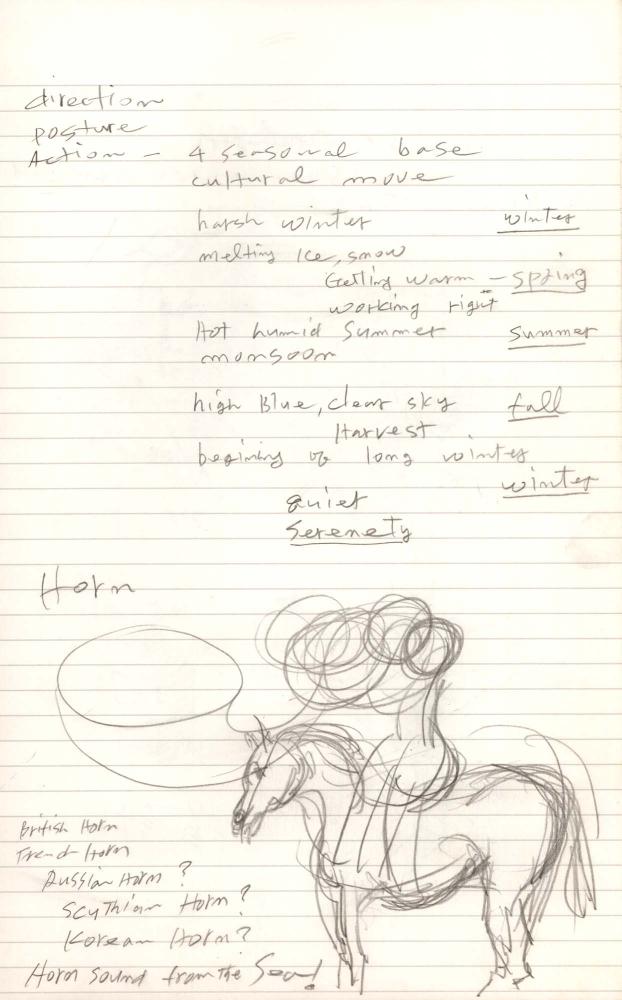 direction
posture
Action - 4 seasonal base
cultural move
harsh winter winter
melting Ice, snow
Getting warm - spring
working right
Hot humid Summer summer
monsoon
high Blue, clear sky fall
Harvest
begining of long winter
winter
quiet
Serenety
Horn
British Horn
French Horn
Russian Horn ?
Scythian Horn ?
Korean Horn ?
Horn sound from the Sea!